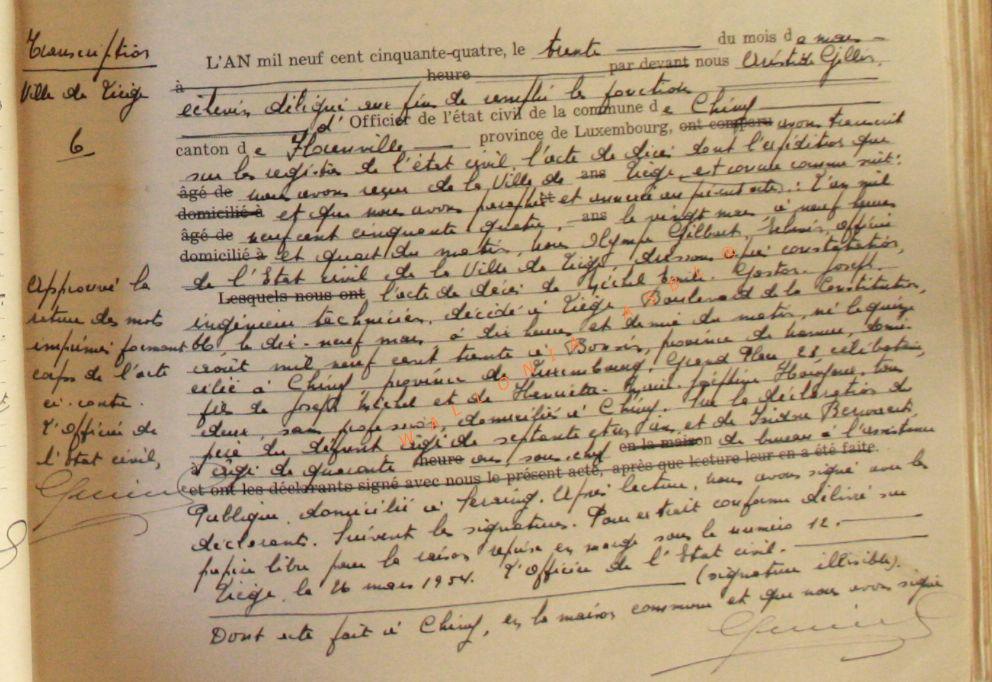 Transcription
Ville de Liège
6
L'AN mil neuf cent cinquante-quatre, le trente du mois de mars
à heure par devant nous Aristide Gillis,
échevin délégué aux fins de remplir la fonction
d' Officier de l'état civil de la commune de Chiny
canton de Florenville province de Luxembourg, ont comparu avons transcrit
sur les registres de l'état civil, l'acte de décès dont l'expédition que
âgé de nous avons reçue de la Ville de ans Liège, est conçue comme suit:
domicilié à et que nous avons paraphée et annexée au présent acte: L'an mil
âgé de neuf cent cinquante quatre, ans le vingt mars à neuf heures
domicilié à et quart du matin, nous Olympe Gilbart, Echevin, officier
de l'Etat civil de la Ville de Liège dressons après constatation,
Lesquels nous ont l'acte de décès de Michel Gaston Joseph
ingénieur technicien, décédé à Liège, Boulevard de la Constitution,
66 le dix-neuf mars, à dix heures et demie du matin, né le quinze
août mil neuf cent trente à province de Namur, domi-
cilié à Chiny, province de Luxembourg, Grand Place, célibataire,
fils de Joseph Michel et de Henriette Marie Joséphine tous
deux, sans profession, domiciliés à Chiny. Sur la déclaration du
père du défunt âgé de septante et un ans, et de Isidore
à âgé de quarante heure ans, sous chef en la maison de bureau à l'assistance
et ont les déclarants signé avec nous le présent acte, après que lecture leur en a été faite.
Publique, domicilié à Seraing. Après lecture, nous avons signé avec les
déclarants. Suivent les signatures. Pour extrait conforme délivré sur
papier libre pour la raison reprise en marge sous le numéro 12.
Liège, le 26 mars 1954. L'Officier de l'Etat civil.
(signature illisible).
Dont acte fait à Chiny, en la maison commune et que nous avons signé
Approuvé la
rature des mots
imprimés formant
corps de l'acte
ci-contre.
L'Officier de
l'Etat civil,
WALLONIA